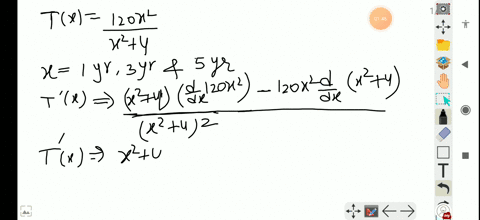 T(x) = 120x² / x²+4
x = 1 yr, 3 yr & 5 yr
T'(x) ⇒ (x²+4) (d/dx 120x²) − 120x² d/dx (x²+4) / (x²+4)2
T'(x) ⇒ x²+u
T